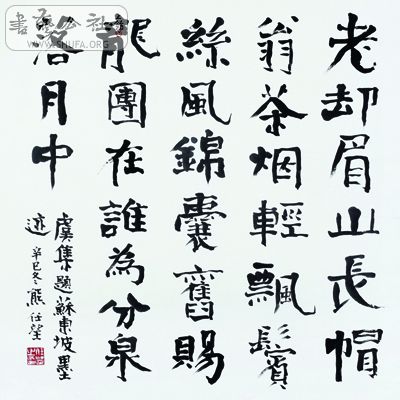 老却眉山長帽
翁茶烟輕飄鬢
絲風錦囊舊賜
龍團在誰為分泉
落月中
虞集題蘇東坡墨
迹 辛巳冬 熊任望
書法公社
WWW.SHUFA.ORG